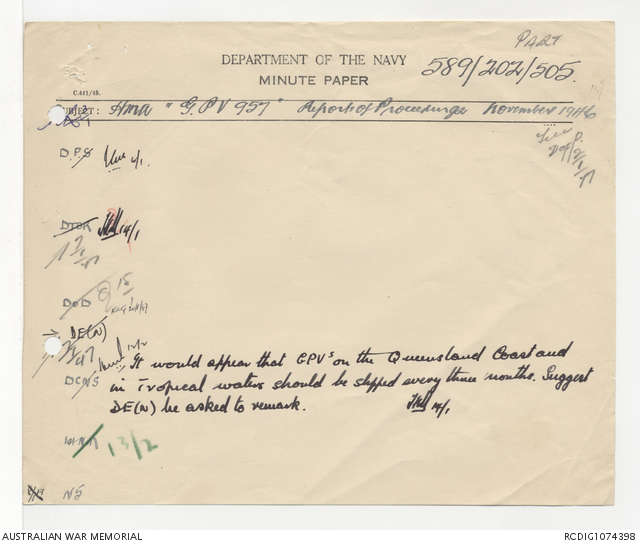 PART
DEPARTMENT OF THE NAVY
MINUTE PAPER
589/202/505.
C.441/45.
SUBJECT: HMA "G.P.V 957" Report of Proceedings November 1946
D.P.S 2/1.
DTSR 14/1
DoD 15
DE(N)
It would appear that GPVs on the Queensland Coast and
DCNS in Tropical waters should be slipped every three months. Suggest
DE(N) be asked to remark. 14/1
13/2
NS
AUSTRALIAN WAR MEMORIAL
RCDIG1074398